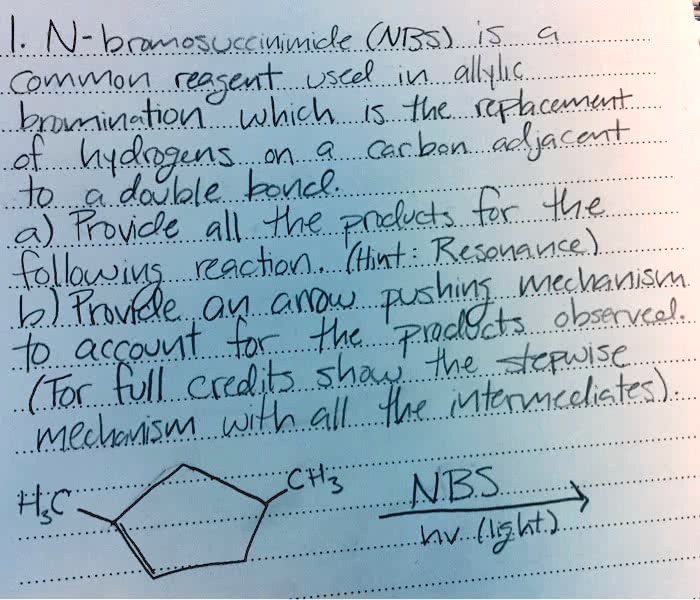 1. N-bromosuccinimide (NBS) is a
common reagent used in allylic
bromination which is the replacement
of hydrogens on a carbon adjacent
to a double bond.
a) Provide all the products for the
following reaction. (Hint: Resonance)
b) Provide an arrow pushing mechanism
to account for the products observed.
(For full credits show the stepwise
mechanism with all the intermediates).
H3C
CH3
NBS
hv (light)